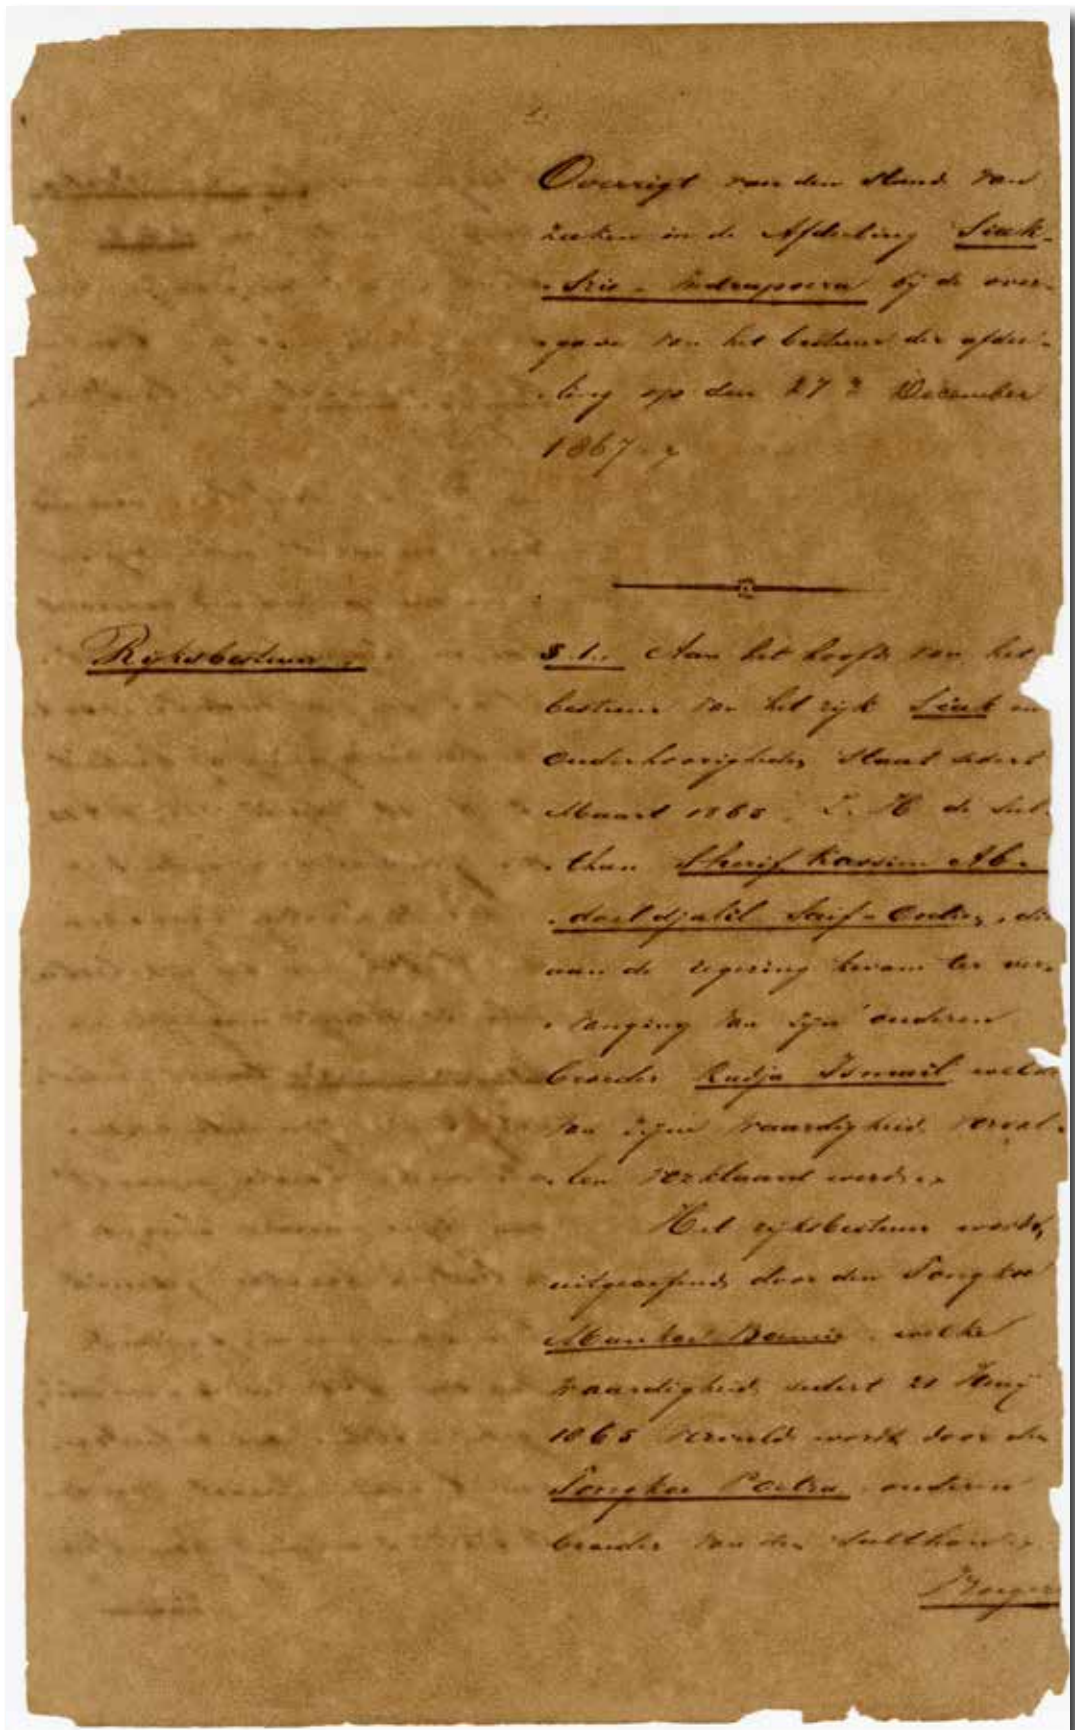 1.
Overzigt van den stand van
zaken in de Afdeeling Siak-
-Srie-Indrapoera bij de over-
-gave van het bestuur der afdee-
-ling op den 27e December
1867.
Rijksbestuur.
§ 1. Aan het hoofd van het
bestuur van het rijk Siak en
onderhoorigheden staat sedert
Maart 1865 Z. H. de Sul-
-than Sherif Kassim Ab-
-doel djalil Saif-Oedin, die
aan de regering kwam ter ver-
-vanging van zijn ouderen
broeder Radja Ismail welke
van zijne waardigheid verval-
-len verklaard werd.
Het rijksbestuur wordt
uitgeoefend door den Tongkoe
Mankoe Boemie, welke
waardigheid sedert 21 Junij
1865 vervuld wordt door den
Tongkoe Poetra, ouderen
broeder van den Sulthan.